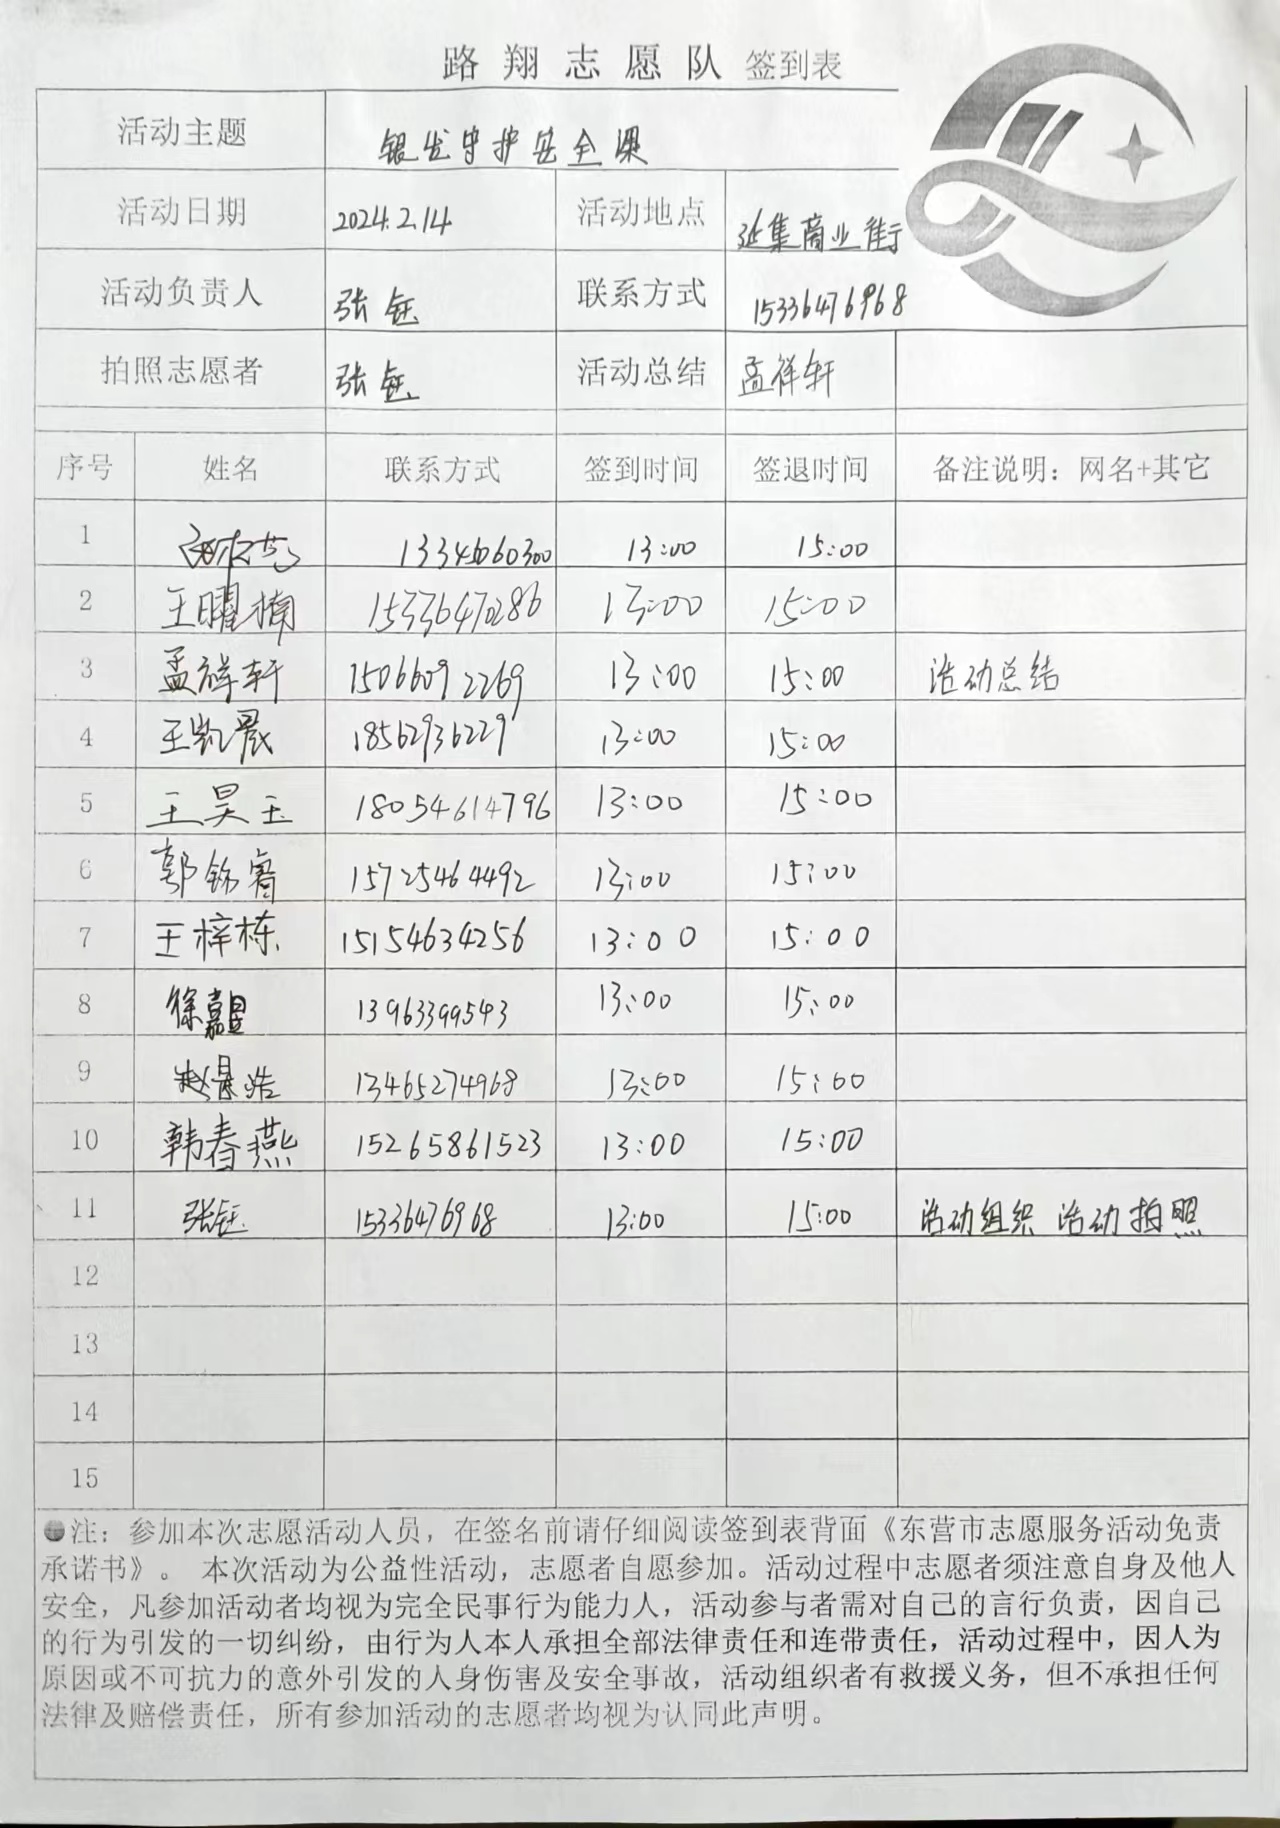 路翔志愿队 签到表
活动主题 银发守护安全课
活动日期 2024.2.14 活动地点 延集商业街
活动负责人 张钰 联系方式 15336476968
拍照志愿者 张钰 活动总结 孟祥轩
序号 姓名 联系方式 签到时间 签退时间 备注说明：网名+其它
1 13345060300 13:00 15:00
2 王曜楠 15336470286 13:00 15:00
3 孟祥轩 15066092269 13:00 15:00 活动总结
4 王凯晟 18562936229 13:00 15:00
5 王昊玉 18054614796 13:00 15:00
6 郭锦睿 15725464492 13:00 15:00
7 王梓栋 15154634256 13:00 15:00
8 徐嘉昱 13963399543 13:00 15:00
9 赵景浩 13465274968 13:00 15:00
10 韩春燕 15265861523 13:00 15:00
11 张钰 15336476968 13:00 15:00 活动组织 活动拍照
12
13
14
15
●注：参加本次志愿活动人员，在签名前请仔细阅读签到表背面《东营市志愿服务活动免责
承诺书》。 本次活动为公益性活动，志愿者自愿参加。活动过程中志愿者须注意自身及他人
安全，凡参加活动者均视为完全民事行为能力人，活动参与者需对自己的言行负责，因自己
的行为引发的一切纠纷，由行为人本人承担全部法律责任和连带责任，活动过程中，因人为
原因或不可抗力的意外引发的人身伤害及安全事故，活动组织者有救援义务，但不承担任何
法律及赔偿责任，所有参加活动的志愿者均视为认同此声明。